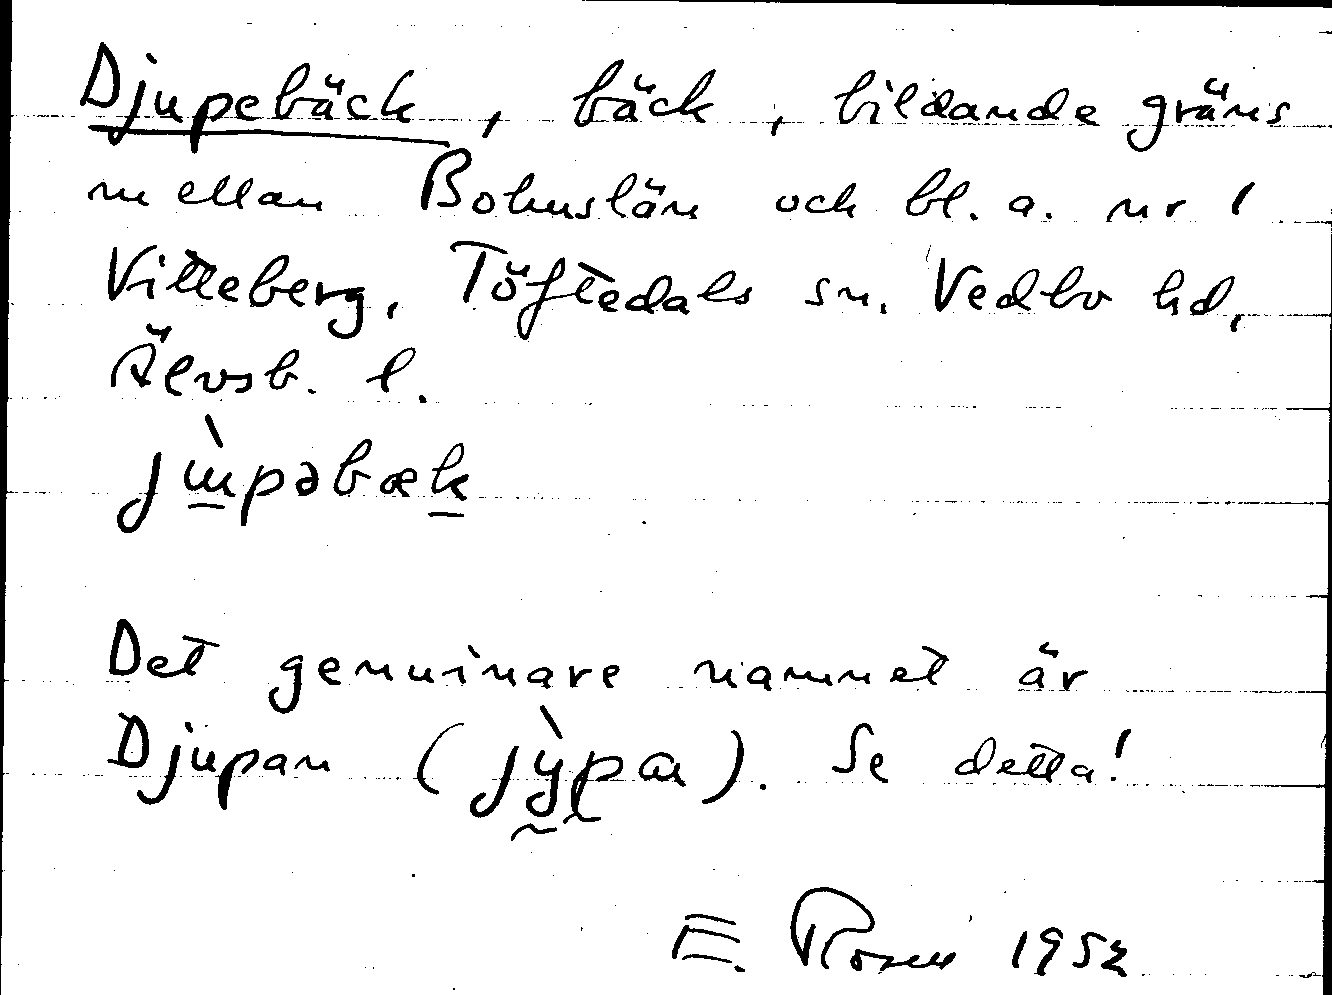 Djupebäck, bäck, bildande gräns
mellan Bohuslän och bl. a. nr 1
Vitteberg, Töftedals sn. Vedbo hd,
Älvsb. l.
jɯ̀pəbæk
Det genuinare namnet är
Djupan (jỳpa). Se detta!
E. Rosell 1952